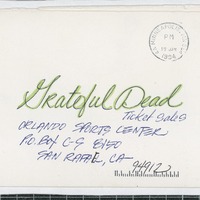 PM
1994
Grateful Dead
Ticket Sales
ORLANDO SPORTS CENTER
P.O. BOX C-S 8150
SAN RAFAEL, CA
94912